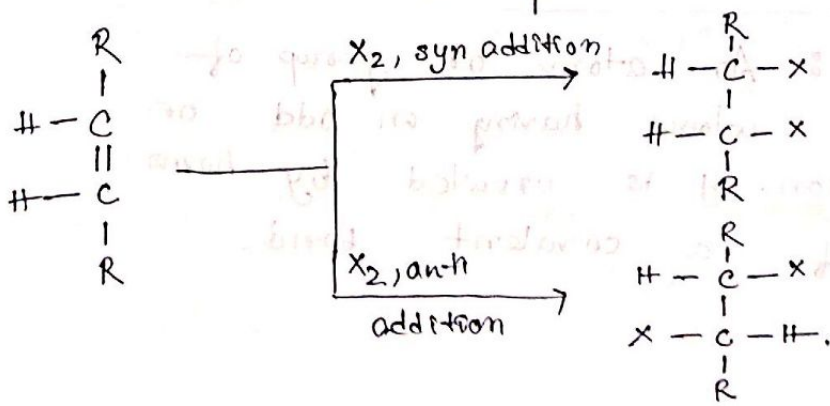 R
|
H - C
||
H - C
|
R
X2, syn addition
R
|
H - C - X
|
H - C - X
|
R
X2, anti
addition
R
|
H - C - X
|
X - C - H.
|
R